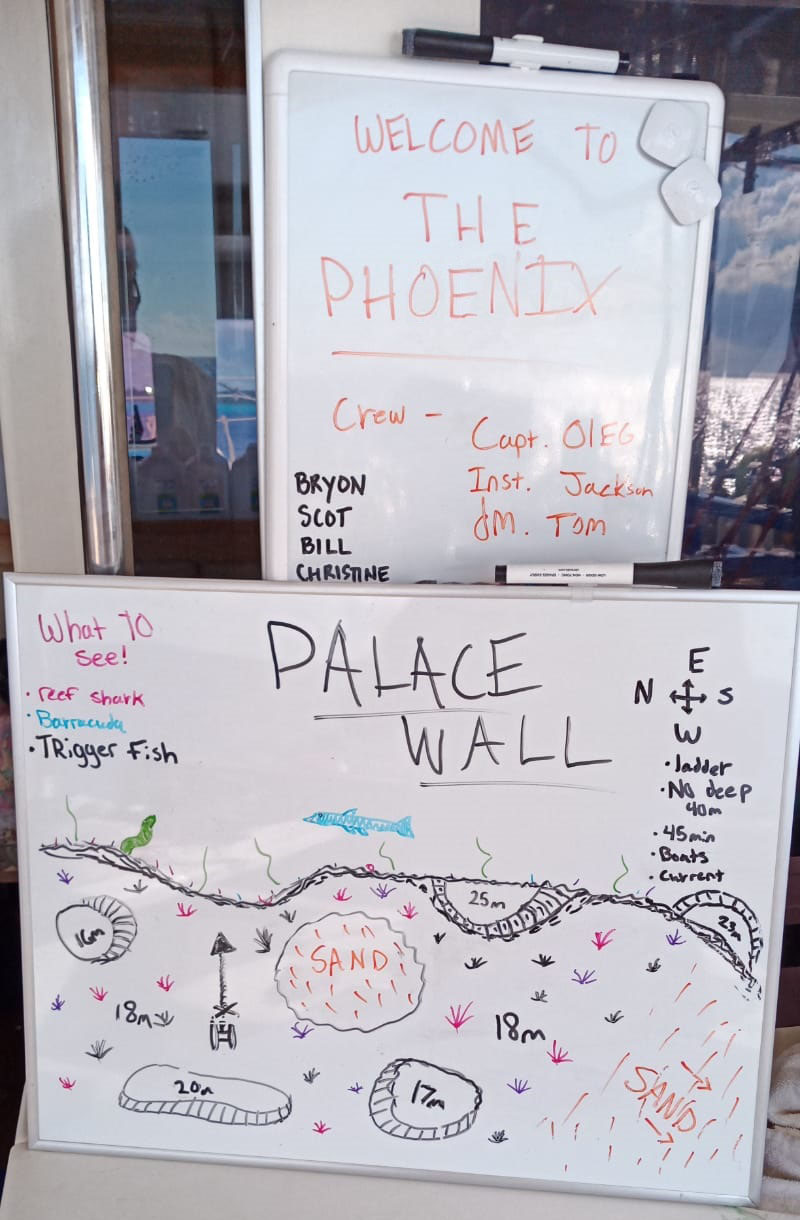 WELCOME TO
THE
PHOENIX
Crew - Capt. OlEG
Inst. Jackson
DM. TOM
BRYON
SCOT
BILL
CHRISTINE
What TO
see!
• reef shark
• Barracuda
• TRigger Fish
PALACE
WALL
E
N S
W
• ladder
• No deep
40m
• 45min
• Boats
• Current
16m
25m
23m
SAND
18m
18m
20m
17m
SAND